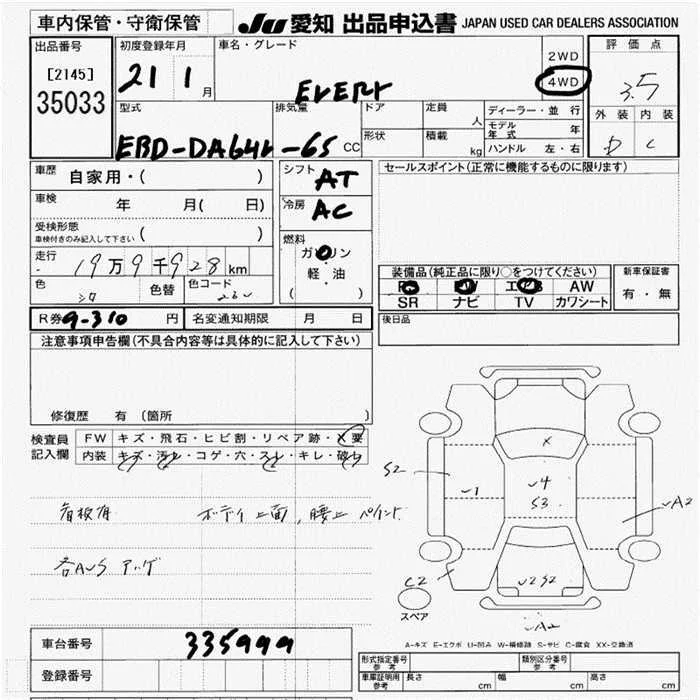 車内保管・守衛保管
JU 愛知 出品申込書 JAPAN USED CAR DEALERS ASSOCIATION
出品番号
[2145]
35033
初度登録年月
21 1 月
車名・グレード
EVERY
2WD
4WD
評価点
3.5
外装 内装
D C
型式
EBD-DA64V-65
排気量
CC
ドア
形状
定員 人
積載 kg
ディーラー・並行
モデル年式 年
ハンドル 左・右
車歴 自家用・( )
車検 年 月( 日)
受検形態
車検付きのみ記入して下さい ( )
走行 19万9千928km
色 シロ 色替 色コード 26U
シフト AT
冷房 AC
燃料
ガソリン
軽・油
( )
セールスポイント(正常に機能するものに限ります)
装備品(純正品に限り○をつけてください)
PS PW エアB AW
SR ナビ TV カワシート
新車保証書
有・無
R券 9-310 円 名変通知期限 月 日
後日品
注意事項申告欄(不具合内容等は具体的に記入して下さい)
修復歴 有(箇所 )
検査員記入欄
FW キズ・飛石・ヒビ割・リペア跡・X要
内装 キズ・汚レ・コゲ・穴・スレ・キレ・破レ
看板有 ボディ上面,腰上ペイント
各AUS アゲ
X
S2
U1
U4
S3
A2
C2
U2S2
A2
スペア
A-キズ E-エクボ U-凹み W-補修跡 S-サビ C-腐食 XX-交換済
車台番号 335999
登録番号
形式指定番号 参考
類別区分番号 参考
車庫証明用 参考 長さ cm 幅 cm 高さ cm